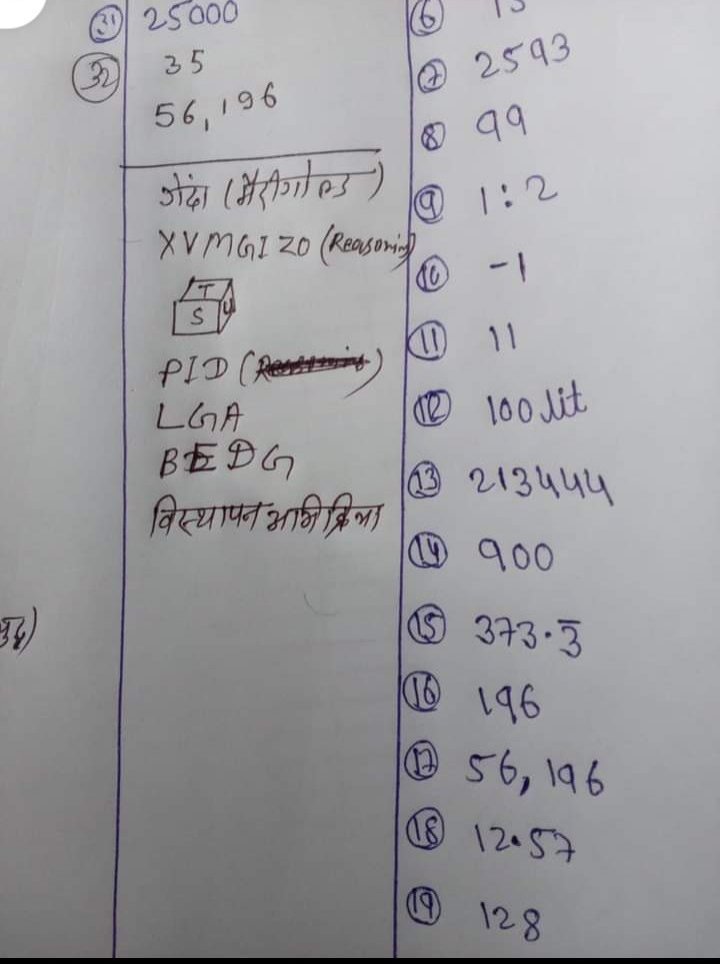 31 25000
32 35
56, 196
गेंदा (मैरीगोल्ड)
XVMGIZO (Reasoning)
T
S U
PID
LGA
BEDG
विस्थापन अभिक्रिया
6
7 2593
8 99
9 1:2
10 -1
11 11
12 100 lit
13 213444
14 900
15 373.3̅
16 196
17 56, 196
18 12.57
19 128